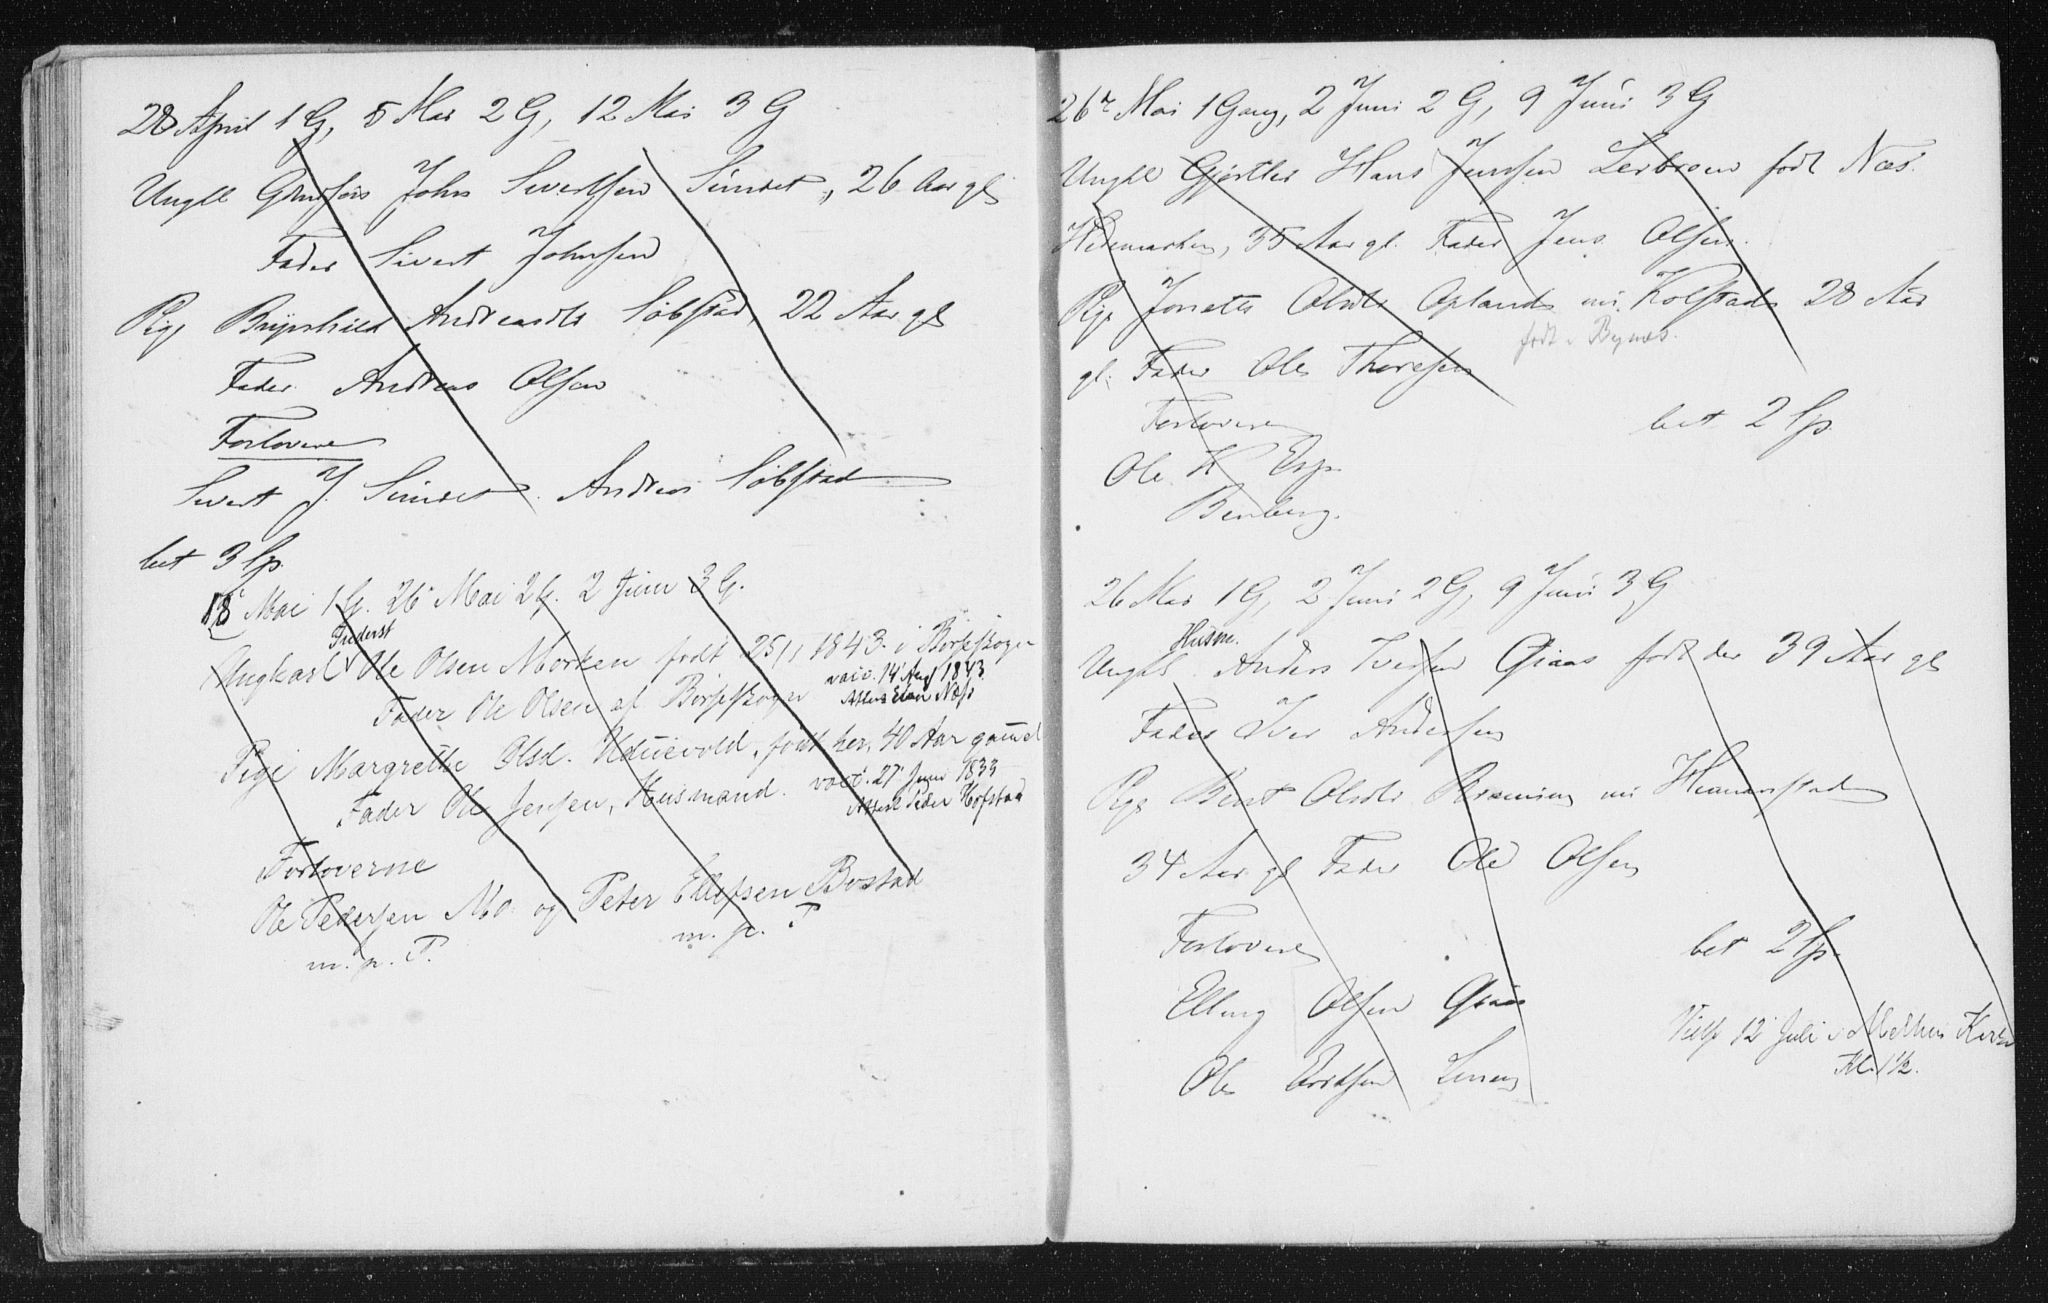 28 April 1 G, 5 Mai 2 G, 12 Mai 3 G
Ungkl John Sivertsen Simset, 26 Aar gl
Fader Sivert Johnsen
Pige Brynhild Andreasdtr Söbstad, 22 Aar gl
Fader Andreas Olsen
Forlovere
Sivert J. Simset. Andreas Söbstad
bet 3 Sp.
18 Mai 1 G. 26 Mai 2 G. 2 Juni 3 G.
Inderst
Ungkarl Ole Olsen Morken født 25/1 1843 i Börseskogn
vacc. 14 Aug 1843
Fader Ole Olsen af Börseskogn Attest Næs
Pige Margrethe Olsd. Uduevold, født her, 40 Aar gammel
vacc. 27 Juni 1833
Fader Ole Jensen, Husmand. Attest Peder Hofstad
Forloverne
Ole Pedersen Mo og Peter Ellefsen Bostad
m. p. P. m. p. P
26 Mai 1 Gang, 2 Juni 2 G, 9 Juni 3 G
Ungkl Gjørtler Hans Jensen Lerbroen født Næs.
Hedemarken, 35 Aar gl. Fader Jens Olsen.
Pige Jonette Olsdtr Opland, nu Kolstad 28 Aar
født i Bynes.
gl. Fader Ole Thoresen
Forlovere bet 2 Sp.
Ole K Esp.
Benberg.
26 Mai 1 G, 2 Juni 2 G, 9 Juni 3 G
Husm.
Ungkl. Anders Iversen Graas født her 39 Aar gl
Fader Iver Andersen
Pige Berit Olsdtr nu
34 Aar gl Fader Ole Olsen
Forlovere bet 2 Sp.
Elling Olsen Graas
Vielse 12 Juli i Melhus Kirke
Kl. 1½.
Ole